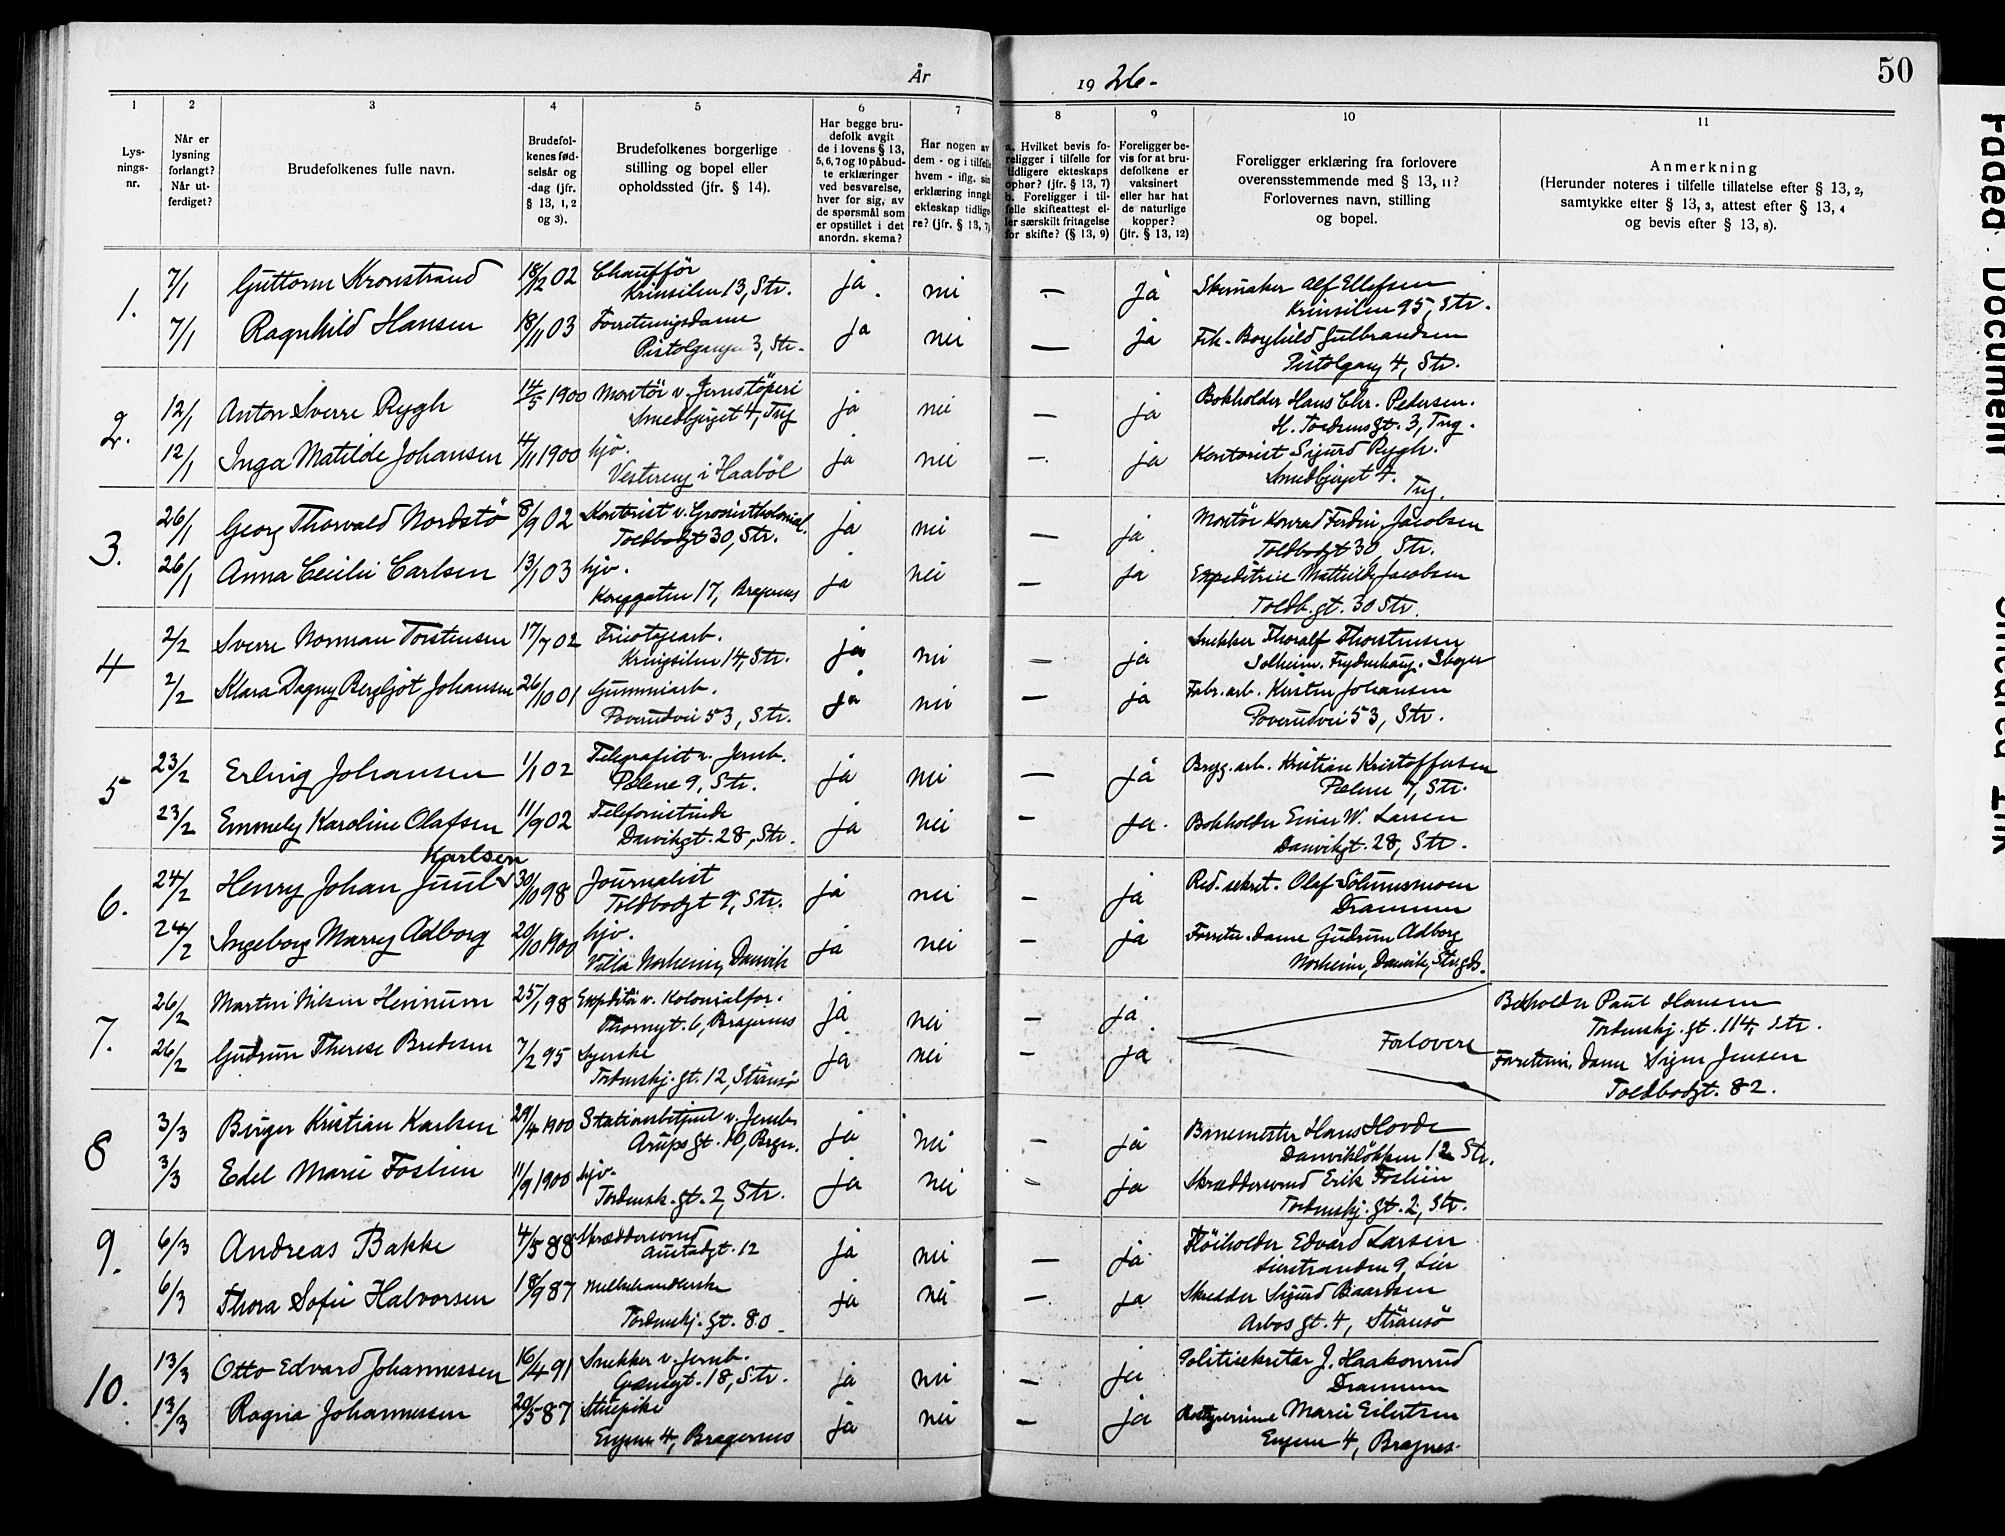 50
År 1926.
1 2 3 4 5 6 7 8 9 10 11
Lys-
nings-
nr.
Når er
lysning
forlangt?
Når ut-
ferdiget?
Brudefolkenes fulle navn.
Brudefol-
kenes fød-
selsår og
-dag (jfr.
§ 13, 1, 2
og 3).
Brudefolkenes borgerlige
stilling og bopel eller
opholdssted (jfr. § 14).
Har begge bru-
defolk avgit
de i lovens § 13,
5, 6, 7 og 10 påbud-
te erklæringer
ved besvarelse,
hver for sig, av
de spørsmål som
er opstillet i det
anordn. skema?
Har nogen av
dem - og i tilfelle
hvem - iflg. sin
erklæring inngå
ekteskap tidlige
re? (jfr. § 13, 7)
a. Hvilket bevis fo-
religger i tilfelle for
tidligere ekteskaps
ophør? (jfr. § 13, 7)
b. Foreligger i til-
felle skifteattest el-
ler særskilt fritagelse
for skifte? (§ 13, 9)
Foreligger be-
vis for at bru-
defolkene er
vaksinert
eller har hat
de naturlige
kopper?
(jfr. § 13, 12)
Foreligger erklæring fra forlovere
overensstemmende med § 13, 11?
Forlovernes navn, stilling
og bopel.
Anmerkning
(Herunder noteres i tilfelle tillatelse efter § 13, 2,
samtykke efter § 13, 3, attest efter § 13, 4
og bevis efter § 13, 8).
1. 7/1 Guttorm Kronstrand 18/12 02 Chauffør ja. nei — ja Skomaker Alf Ellefsen
Krinsilen 13, Str. Krinsilen 95, Str.
7/1 Ragnhild Hansen 18/11 03 Forretningsdame ja nei — ja Frk. Borghild Gulbrandsen
3, Str. Pistolgang 4, Str.
2. 12/1 Anton Sverre Rygh 14/5 1900 Montör v. Jernstöperi ja nei — ja Bokholder Hans Chr. Pedersen.
Smedbjerget 4, Trg 3, Trg.
12/1 Inga Matilde Johansen 4/11 1900 hjv. ja nei — ja Kontorist Sigurd Rygh.
Vestereng i Haaböl Smedbjerget 4.
Trg.
3. 26/1 Georg Thorvald Nordstö 8/9 02 Kontorist v. ja nei — ja Montör Konrad Ferdin. Jacobsen
Toldbodgt 30, Str. Toldbodgt 30, Str.
26/1 Anna Cecilie Carlsen 13/1 03 hjv. ja nei — ja Expeditrice Mathilde Jacobsen
Konggaten 17, Bragernes Toldb. gt. 30 Str.
4 2/2 Sverre Norman Torstensen 17/7 02 Tricotagearb. ja nei — ja Snekker Thoralf Thorstensen
14, Str. Solheim. Skoger
2/2 Klara Dagny Bergljot Johansen 26/10 01 Gummiarb. ja nei — ja Fabr. arb. Kirsten Johansen
53, Str. 53, Str.
5 23/2 Erling Johansen 1/1 02 Telegrafist v. Jernb. ja nei — ja Bryg. arb. Kristian Kristoffersen
Pælene 9, Str. Pælene 7, Str.
23/2 Emmely Karoline Olafsen 11/9 02 Telefonistinde ja nei — ja. Bokholder Einar W. Larsen
Danvikgt. 28, Str. Danvikgt. 28, Str.
Karlsen
6. 24/2 Henry Johan Juul 30/10 98 Journalist ja nei — ja Red. sekret. Olaf Solumsmoen
Toldbodgt 9, Str. Drammen
24/2 Ingeborg Marry Adborg 20/10 1900 hjv. ja nei — ja Forretn. dame Gudrun Adborg
Villa Norheim, Danvik Norheim, Danvik,
7. 26/2 Martin Nilsen Hennum 25/1 98 Expeditör v. Kolonialfor. ja nei — ja Bokholder Paul Hansen
Thornegt. 6, Bragernes Tordenskj. gt. 114, Str.
Forlovere
26/2 Gudrun Therese Bredesen 7/2 95 Syerske ja nei — ja Forretnin. dame Signe Jensen
Tordenskj. gt. 12, Strömsö Toldbodgt. 82.
8 3/3 Birger Kristian Karlsen 29/4 1900 Stationsbetjent v. Jernb. ja nei — ja Banemester Hans Hovde
Arups gt. 10, Bragn. Danviklökken 12 Str.
3/3 Edel Marie Foslien 11/9 1900 hjv. ja nei — ja Skræddersvend Erik Foslien
Tordensk. gt. 2, Str. Tordenskj. gt. 2, Str.
9. 6/3 Andreas Bakke 4/5 88 Skræddersvend ja nei — ja Edvard Larsen
Austadgt. 12 Lierstranden 9, Lier
6/3 Thora Sofie Halvorsen 18/9 87 Melkehandlerske ja nei — ja Skredder Sigurd Baardsen
Tordenskj. gt. 80 Arbos gt. 4, Strömsö
10. 13/3 Otto Edvard Johannessen 16/4 91 Snekker v. Jernb. ja nei — ja Politisekretær J. Haakonrud
18, Str. Drammen
13/3 Ragna Johannessen 20/5 87 Stuepike ja nei — ja Marie Eilertsen
Engene 4, Bragernes Engene 4, Bragnes.
Faded Document
Smeared Ink